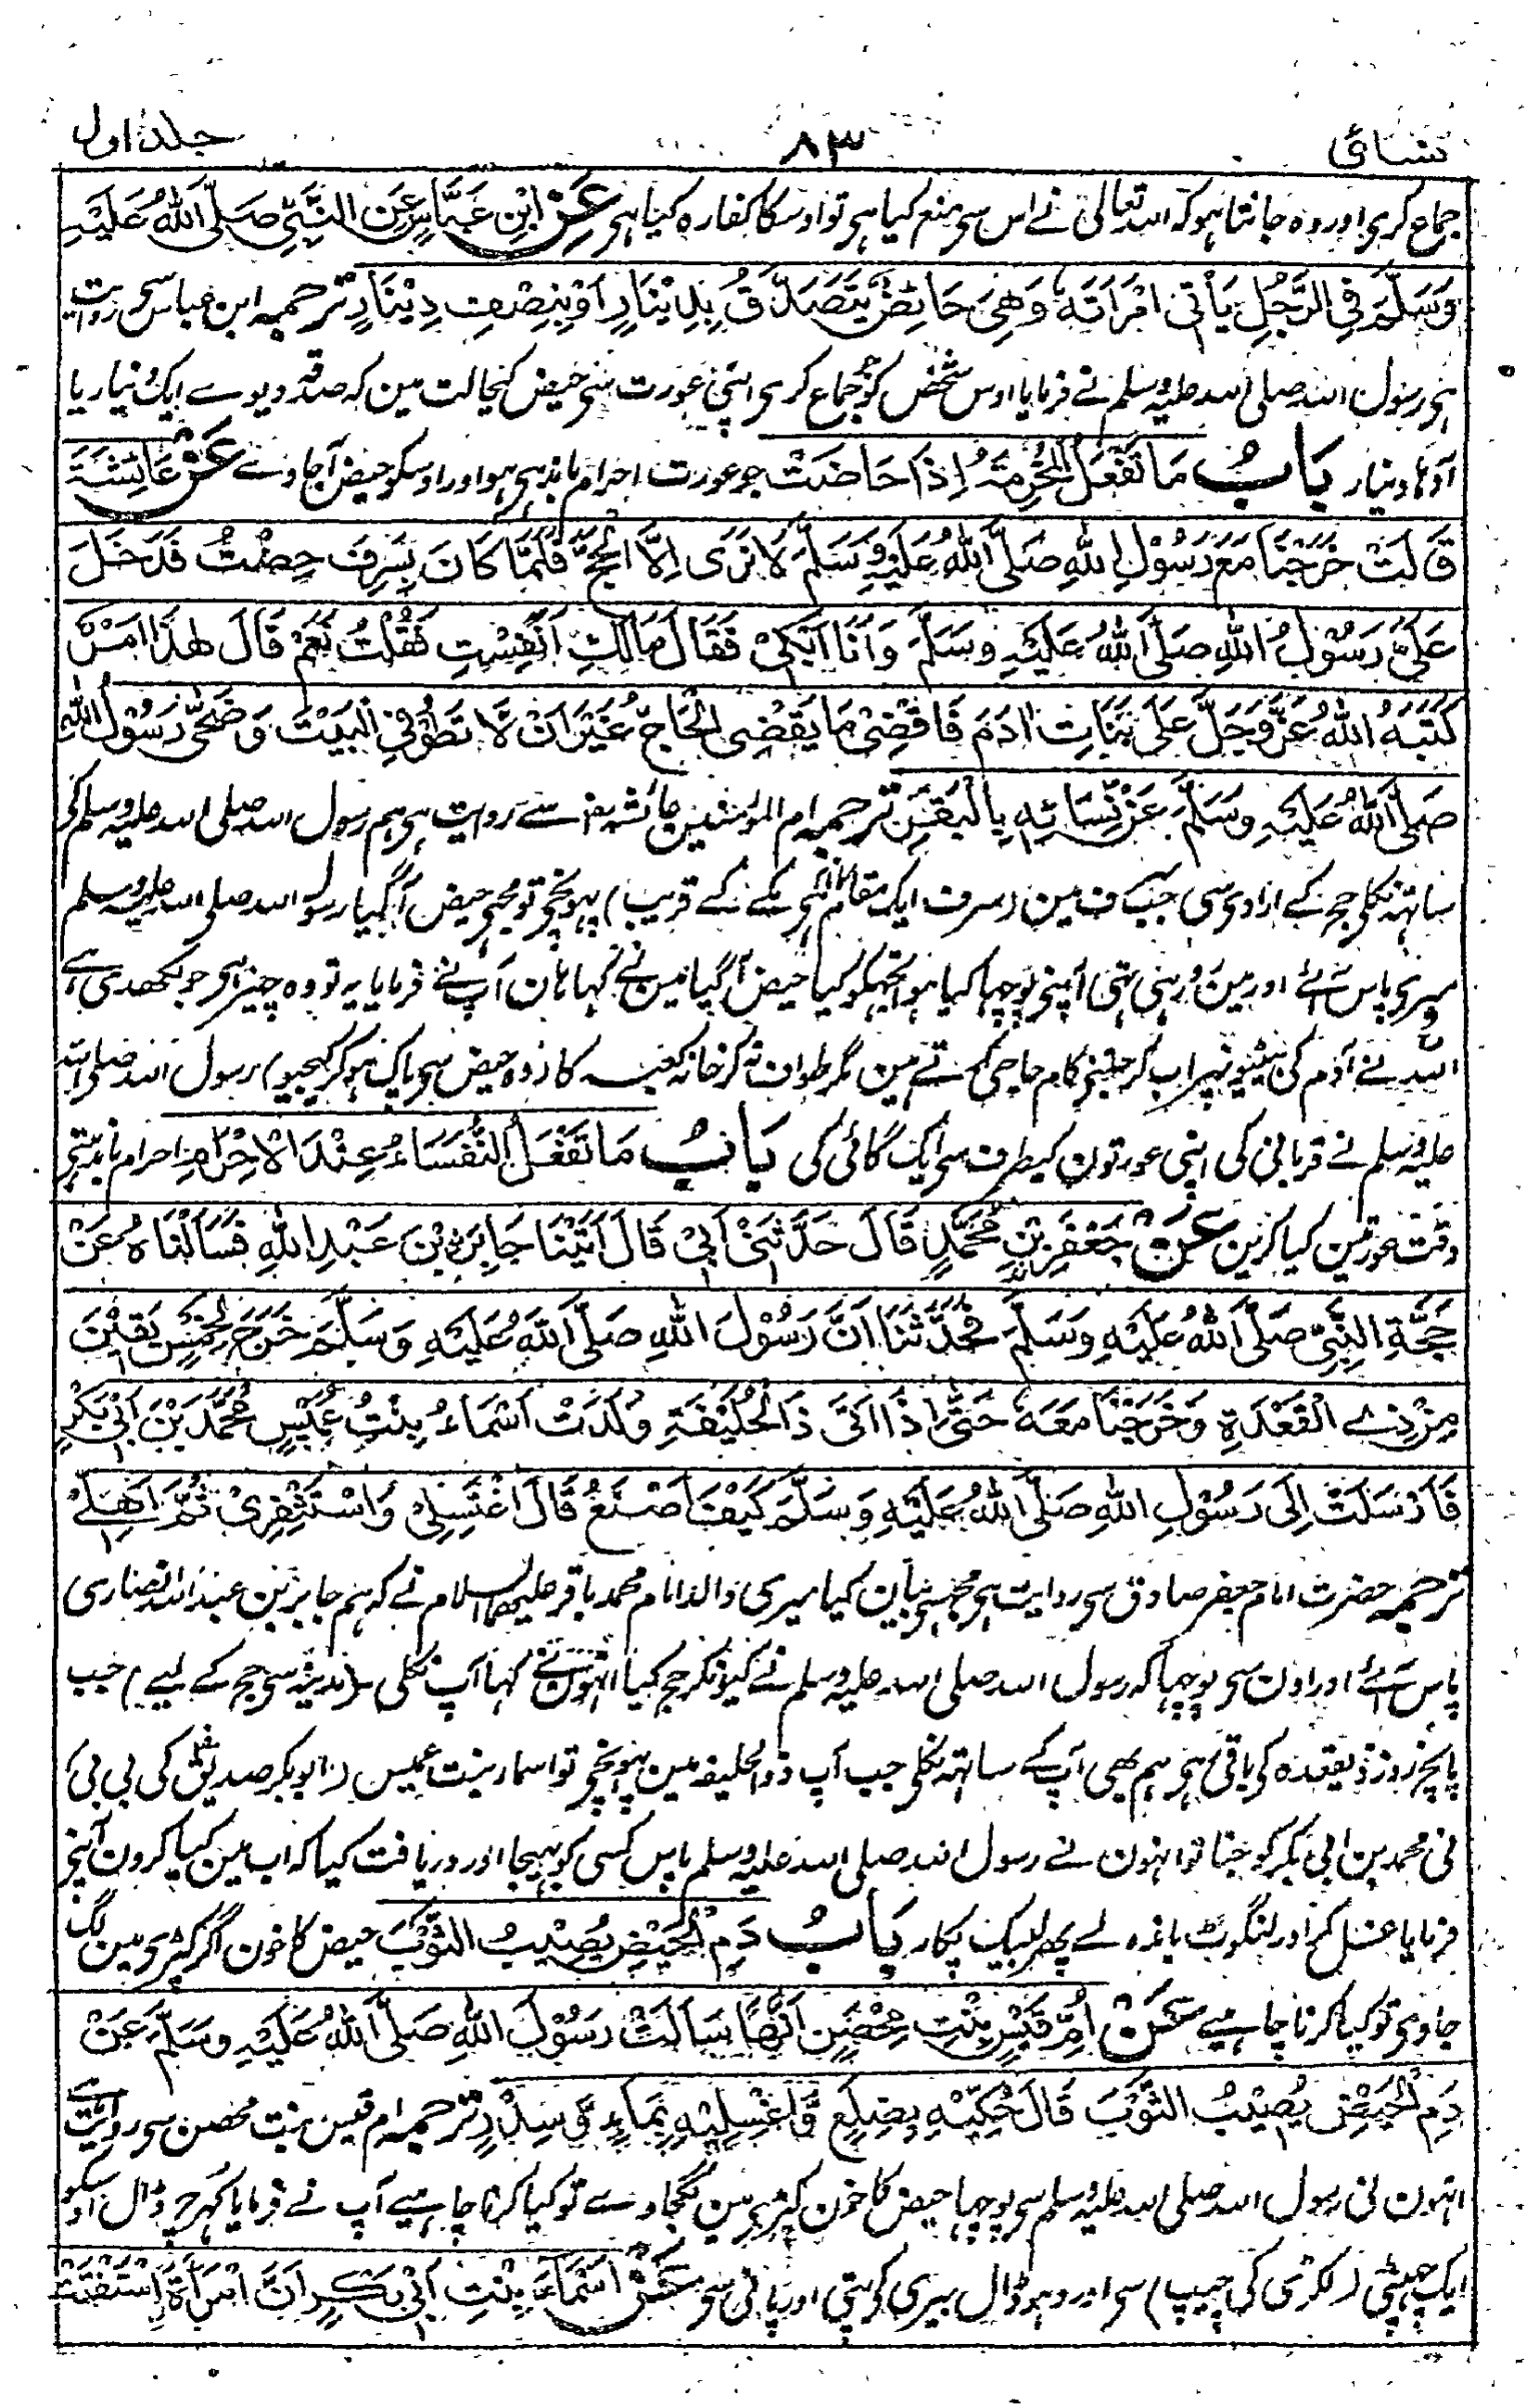 نسائی ۸۳ جلد اول
جماع کری اور وہ جانتا ہو کہ اللہ تعالی نے اس سی منع کیا ہی تو اوسکا کفارہ کیا ہی عَنِ ابْنِ عَبَّاسٍ عَنِ النَّبِيِّ صَلَّى اللهُ عَلَيْهِ
وَسَلَّمَ فِي الرَّجُلِ يَأْتِي امْرَأَتَهُ وَهِيَ حَائِضٌ يَتَصَدَّقُ بِدِيْنَارٍ اَوْ بِنِصْفِ دِيْنَارٍ ترجمہ ابن عباس سی روایت
ہی رسول اللہ صلی اللہ علیہ وسلم نے فرمایا اوس شخص کو جو جماع کری اپنی عورت سی حیض کیحالت مین کہ صدقہ دیوے ایک دنیار یا
آدہا دنیار بَابُ مَا تَفْعَلُ الْمُحْرِمَةُ اِذَا حَاضَتْ جو عورت احرام باندہی ہو اور اوسکو حیض آجاوے عَنْ عَائِشَةَ
قَالَتْ خَرَجْنَا مَعَ رَسُوْلِ اللهِ صَلَّى اللهُ عَلَيْهِ وَسَلَّمَ لَا نَرٰى اِلَّا الْحَجَّ فَلَمَّا كَانَ بِسَرِفَ حِضْتُ فَدَخَلَ
عَلَيَّ رَسُوْلُ اللهِ صَلَّى اللهُ عَلَيْهِ وَسَلَّمَ وَاَنَا اَبْكِيْ فَقَالَ مَالَكِ اَنَفِسْتِ فَقُلْتُ نَعَمْ قَالَ هٰذَا اَمْرٌ
كَتَبَهُ اللهُ عَزَّ وَجَلَّ عَلٰى بَنَاتِ اٰدَمَ فَاقْضِيْ مَا يَقْضِي الْحَاجُّ غَيْرَ اَنْ لَّا تَطُوْفِيْ الْبَيْتَ وَضَحّٰى رَسُوْلُ اللهِ
صَلَّى اللهُ عَلَيْهِ وَسَلَّمَ عَنْ نِّسَائِهٖ بِالْبَقَرِ ترجمہ ام المؤمنین عائشہ سے روایت ہی ہم رسول اللہ صلی اللہ علیہ وسلم کی
ساتہہ نکلی حج کے ارادی سی جب سرف مین (سرف ایک مقام ہی مکے کے قریب) پہونچی تو مجہی حیض آگیا رسول اللہ صلی اللہ علیہ وسلم
میری پاس آئے اور مین رو رہی تہی آپنی پوچہا کیا ہوا تجہکو کیا حیض آگیا مین نے کہا ہان آپ نے فرمایا یہ تو وہ چیز ہی جو لکھدی ہے
اللہ نے آدم کی بیٹیونپر اب کر جتنی کام حاجی کرتے ہین مگر طواف نہ کر خانہ کعبہ کا (وہ حیض سی پاک ہو کر کیجیو) رسول اللہ صلی اللہ
علیہ وسلم نے قربانی کی اپنی عورتون کیطرف سی ایک گائی کی بَابُ مَا تَفْعَلُ النُّفَسَاءُ عِنْدَ الْاِحْرَامِ احرام باندہتی
وقت عورتین کیا کرین عَنْ جَعْفَرِ بْنِ مُحَمَّدٍ قَالَ حَدَّثَنِيْ اَبِيْ قَالَ اَتَيْنَا جَابِرَ بْنَ عَبْدِ اللهِ فَسَاَلْنَاهُ عَنْ
حَجَّةِ النَّبِيِّ صَلَّى اللهُ عَلَيْهِ وَسَلَّمَ فَحَدَّثَنَا اَنَّ رَسُوْلَ اللهِ صَلَّى اللهُ عَلَيْهِ وَسَلَّمَ خَرَجَ لِخَمْسٍ بَقِيْنَ
مِنْ ذِي الْقَعْدَةِ وَخَرَجْنَا مَعَهٗ حَتّٰى اِذَا اَتٰى ذَا الْحُلَيْفَةِ وَلَدَتْ اَسْمَاءُ بِنْتُ عُمَيْسٍ مُحَمَّدَ بْنَ اَبِيْ بَكْرٍ
فَاَرْسَلَتْ اِلٰى رَسُوْلِ اللهِ صَلَّى اللهُ عَلَيْهِ وَسَلَّمَ كَيْفَ اَصْنَعُ قَالَ اغْتَسِلِيْ وَاسْتَثْفِرِيْ ثُمَّ اَهِلِّيْ
ترجمہ حضرت امام جعفر صادق سی روایت ہی مجہسی بیان کیا میری والد امام محمد باقر علیہما السلام نے کہ ہم جابر بن عبداللہ انصاری
پاس آئے اور اون سی پوچہا کہ رسول اللہ صلی اللہ علیہ وسلم نے کیونکر حج کیا انہون نے کہا آپ نکلی (مدینہ سی حج کے لیے) جب
پانچ روز ذیقعدہ کی باقی تہی ہم بھی آپ کے ساتہہ نکلی جب آپ ذوالحلیفہ مین پہونچی تو اسماء بنت عمیس (ابوبکر صدیق کی بی بی)
نی محمد بن ابی بکر کو جنا تو انہون نے رسول اللہ صلی اللہ علیہ وسلم پاس کسی کو بہیجا اور دریافت کیا کہ اب مین کیا کرون آپنی
فرمایا غسل کر اور لنگوٹ باندہ لے پھر لبیک پکار بَابُ دَمِ الْحَيْضِ يُصِيْبُ الثَّوْبَ حیض کا خون اگر کپڑی مین لگ
جاوی تو کیا کرنا چاہیے عَنْ اُمِّ قَيْسٍ بِنْتِ مِحْصَنٍ اَنَّهَا سَاَلَتْ رَسُوْلَ اللهِ صَلَّى اللهُ عَلَيْهِ وَسَلَّمَ عَنْ
دَمِ الْحَيْضِ يُصِيْبُ الثَّوْبَ قَالَ حُكِّيْهِ بِضِلَعٍ وَّاغْسِلِيْهِ بِمَاءٍ وَّسِدْرٍ ترجمہ ام قیس بنت محصن سی روایت ہے
انہون نی رسول اللہ صلی اللہ علیہ وسلم سی پوچہا حیض کا خون کپڑی مین لگجاوے تو کیا کرنا چاہیے آپ نے فرمایا کہرچ ڈال اوسکو
ایک چپٹی (لکڑی کی چیپ) سی اور دہو ڈال بیری کی پتی اور پانی سی عَنْ اَسْمَاءَ بِنْتِ اَبِيْ بَكْرٍ اَنَّ امْرَأَةً اِسْتَفْتَتْ